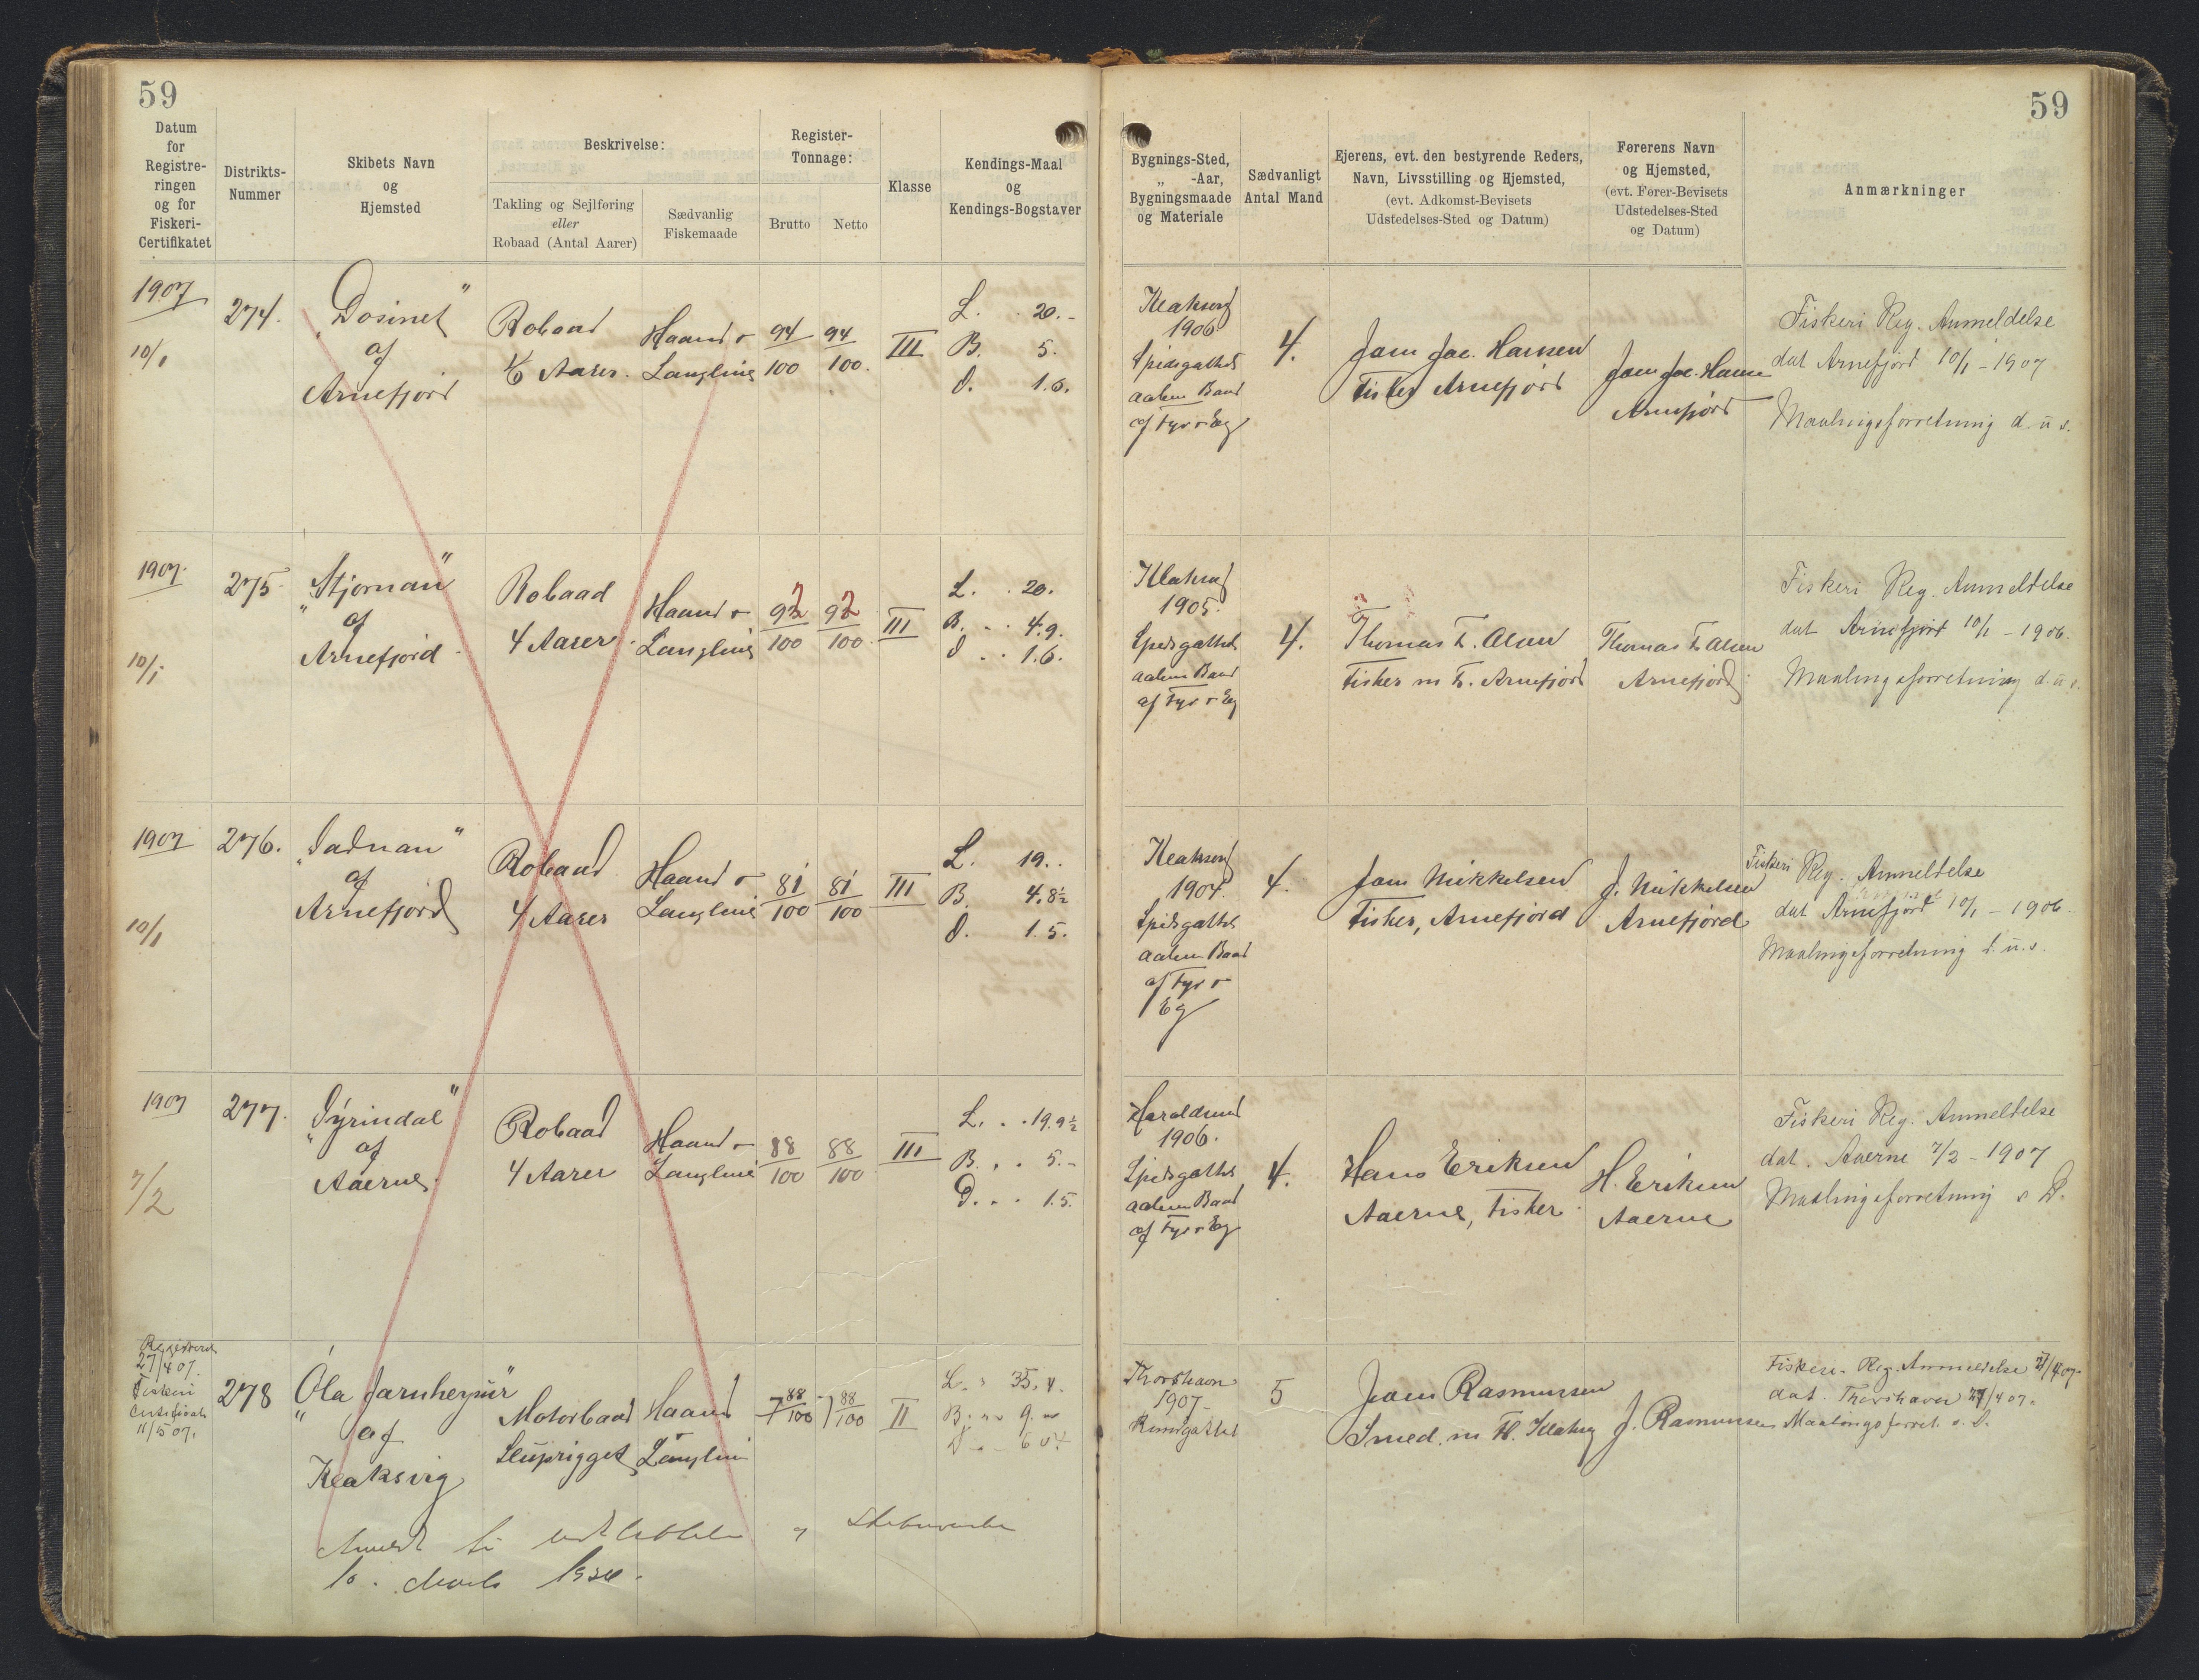 59
59
Datum
for
Registre-
ringen
og for
Fiskeri-
Certifikatet
Distrikts-
Nummer
Skibets Navn
og
Hjemsted
Beskrivelse:
Takling og Sejlføring
eller
Robaad (Antal Aarer)
Sædvanlig
Fiskemaade
Register-
Tonnage:
Brutto
Netto
Klasse
Kendings-Maal
og
Kendings-Bogstaver
Bygnings-Sted,
„ -Aar,
Bygningsmaade
og Materiale
Sædvanligt
Antal Mand
Ejerens, evt. den bestyrende Reders,
Navn, Livsstilling og Hjemsted,
(evt. Adkomst-Bevisets
Udstedelses-Sted og Datum)
Førerens Navn
og Hjemsted,
(evt. Fører-Bevisets
Udstedelses-Sted
og Datum)
Anmærkninger
1907
10/1
274.
„Dosinet"
af
Arnefjord
Robaad
Aarer.
Haand o
Langline
94/100
94/100.
III
L. . 20.-
B. 5.
d. 1.6.
Klaksvig
1906
Spidsgattet
aaben Baad
af Fyr o Eg
4.
Joen Jac. Hansen
Fisker Arnefjord
Joen Jac. Hansen
Arnefjord
Fiskeri Reg. Anmeldelse
dat Arnefjord 10/1 - 1907
Maalingsforretning d. u s.
1907.
10/1
275.
„Stjørnan"
af
Arnefjord
Robaad
4 Aarer.
Haand o
Langline
92/100
92/100
III
L. . 20.
B. . . 4.9.
d . . 1.6.
Klaksvig
1905.
Spidsgattet
aaben Baad
af Fyr o Eg
4.
Thomas F. Olsen
Fisker m F. Arnefjord
Thomas F. Olsen
Arnefjord
Fiskeri Reg. Anmeldelse
dat Arnefjord 10/1 - 1906.
Maalingsforretning d. u s.
1907
10/1
276.
af
Arnefjord
Robaad
4 Aarer
Haand o
Langline
81/100
81/100
III
L. 19..
B. 4.8½
d. 1.5.
Klaksvig
1904.
Spidsgattet
aaben Baad
af Fyr o
Eg
4.
Joen Mikkelsen
Fisker, Arnefjord
J. Mikkelsen
Arnefjord
Fiskeri Reg. Anmeldelse
dat Arnefjord 10/1 - 1906.
Maalingsforretning d. u. s.
1907
7/2
277.
af
Aaerne.
Robaad
4 Aarer
Haand o
Langline
88/100
88/100
III
L. . . 19.9½
B. . . 5.-
D. . . 1.5.
Haraldsund
1906.
Spidsgattet
aaben Baad
af Fyr o Eg
4.
Hans Eriksen
Aaerne, Fisker.
H. Eriksen
Aaerne
Fiskeri Reg. Anmeldelse
dat. Aaerne 7/2 - 1907
Maalingsforretning s D.
Registreret
27/4 07.
Fiskeri
Certifikat
11/5 07.
278
„Óla Jarnheysur"
af
Klaksvig
Motorbaad
Sluprigget
Haand
Langline
7 88/100
7 88/100
II
L. " 35.4.
B. " " 9. "
Thorshavn
1907
Rundgattet
5
Joen Rasmussen
Smed. m Fl. Klaksvig
J. Rasmussen
Fiskeri- Reg. Anmeldelse 27/4 07.
dat. Thorshavn 27/4 07.
Maalingsforret. s. D.